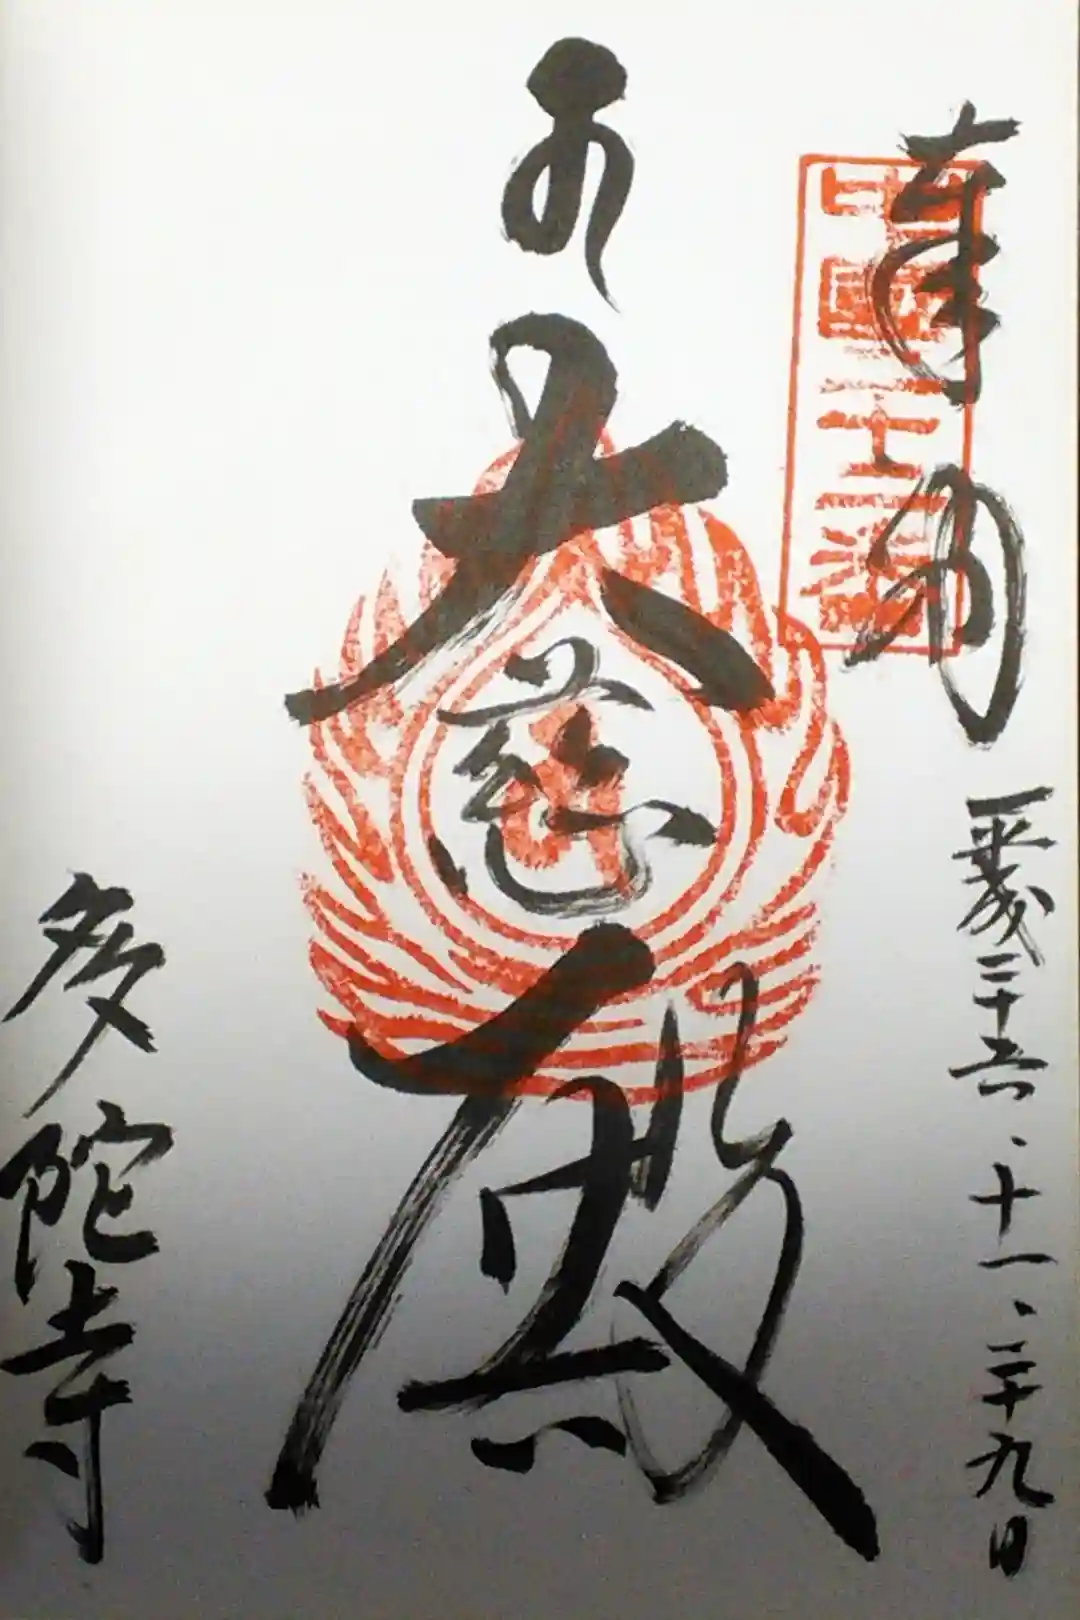 奉納 平成二十六、十一、二十九日
中國二十二番
大慈殿
多陀寺